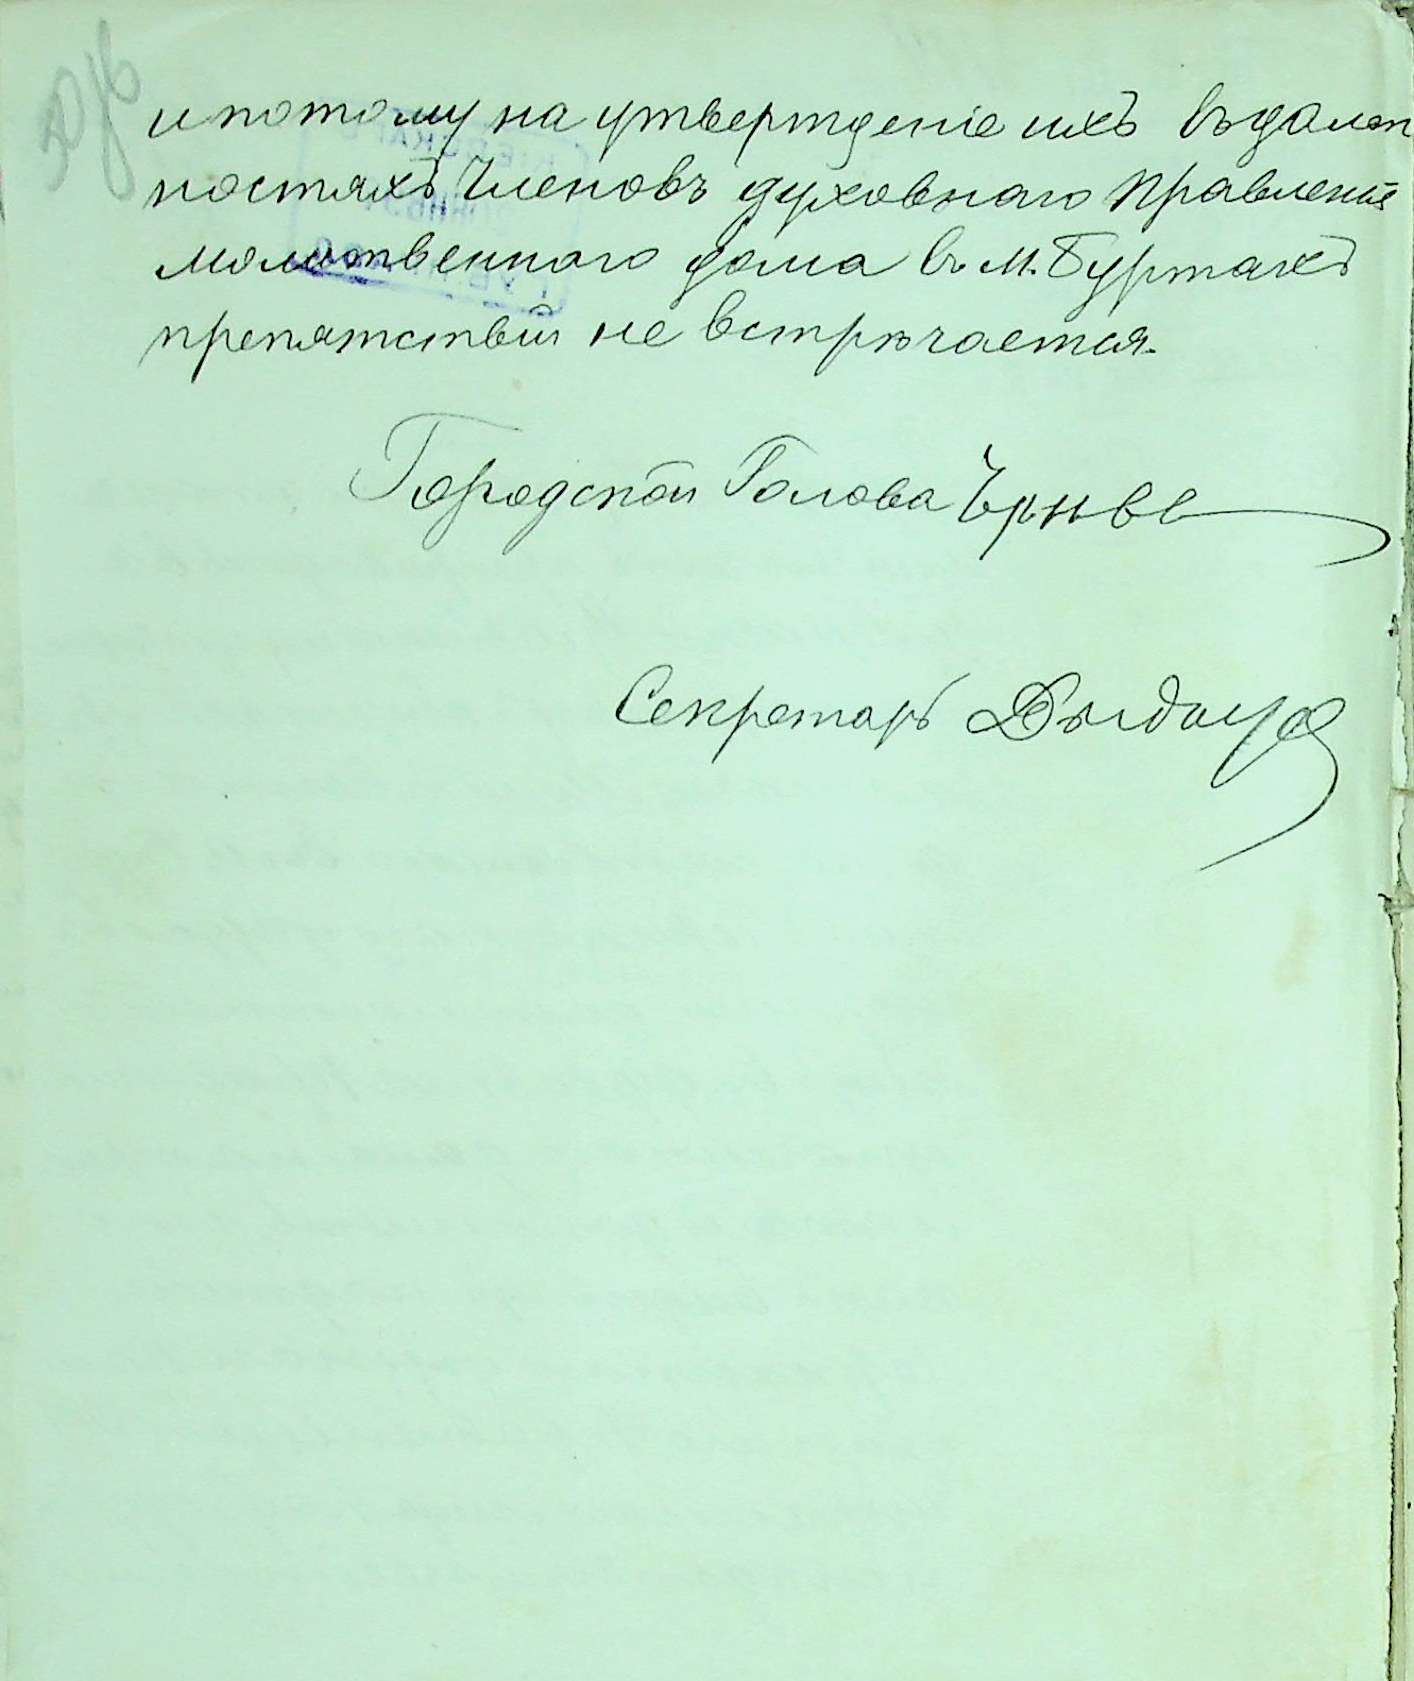 и потому на утвержденіе ихъ въ долж
ностяхъ Членовъ духовнаго Правленія
молитвеннаго дома въ м. Буртахъ
препятствій не встрѣчается.
Городской Голова
Секретарь